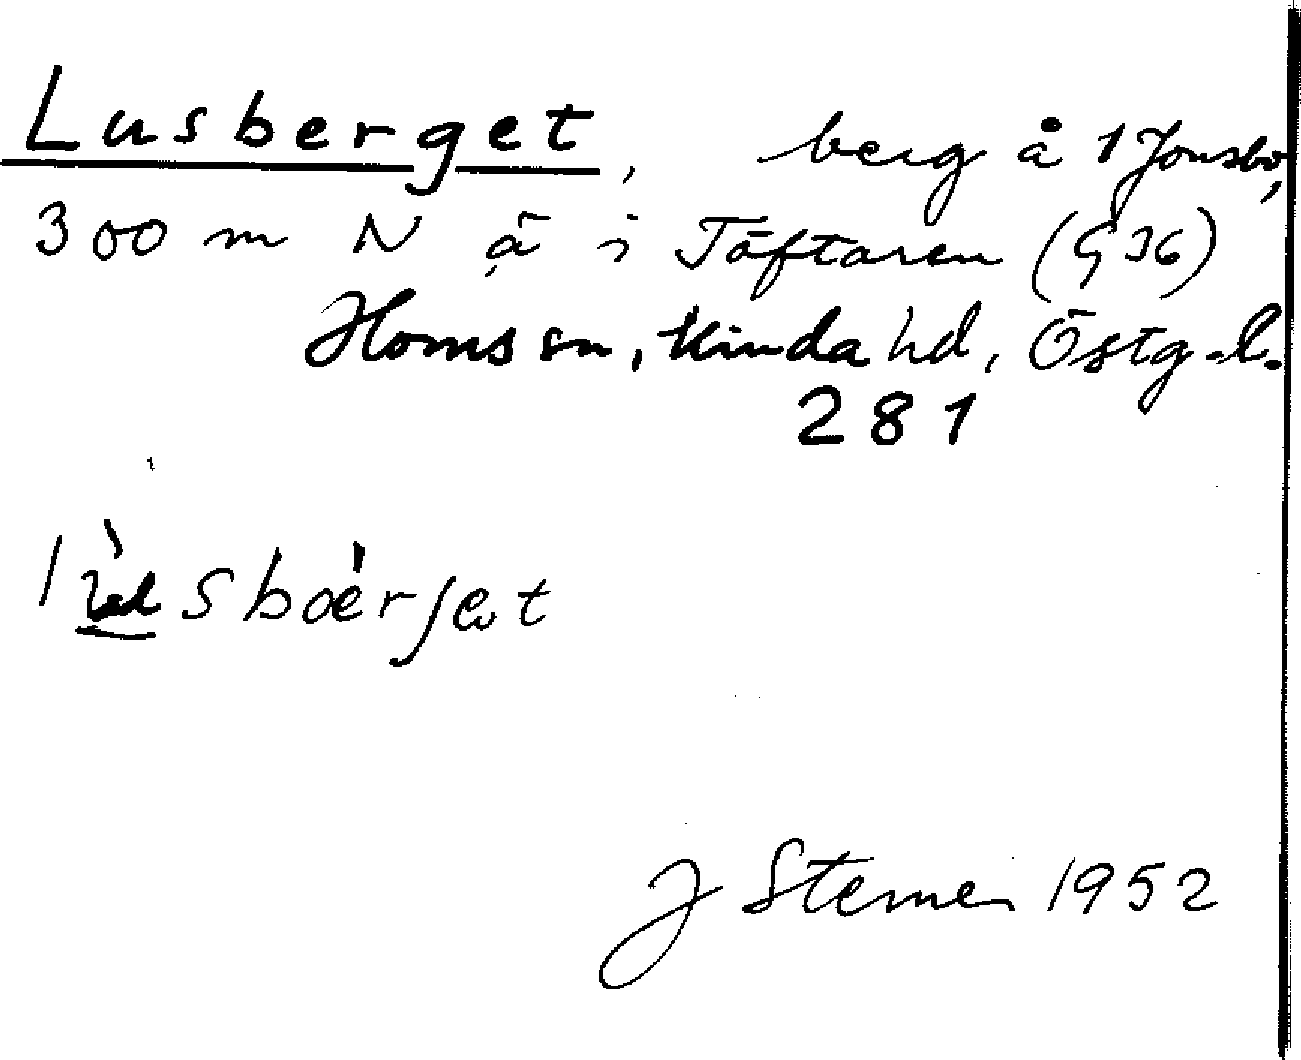 Lusberget, berg å 1 Jonsbo,
300 m N ä i Täftaren (G 36)
Homs sn, Kinda hd, Östg.l.
281
sbärjet
J Sterner 1952